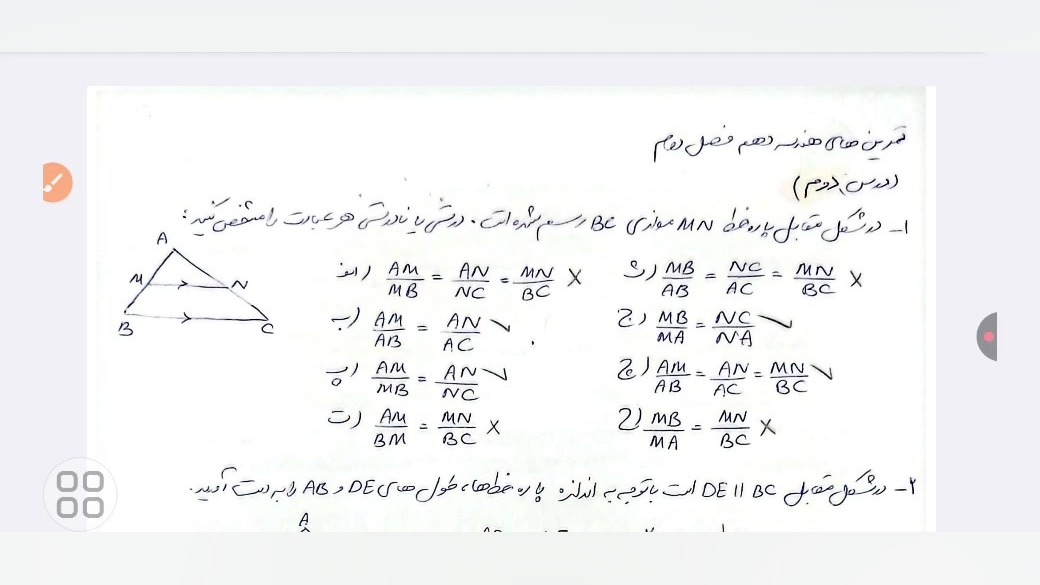 تمرین های هندسه دهم فصل دوم
(درس دوم)
۱- در شکل مقابل پاره خط MN موازی BC رسم شده است. درستی یا نادرستی هر عبارت را مشخص کنید:
A
M
N
B
C
الف) AM/MB = AN/NC = MN/BC ×
ب) AM/AB = AN/AC ✓
پ) AM/MB = AN/NC ✓
ت) AM/BM = MN/BC ×
ث) MB/AB = NC/AC = MN/BC ×
ج) MB/MA = NC/NA ✓
چ) AM/AB = AN/AC = MN/BC ✓
ح) MB/MA = MN/BC ×
۲- در شکل مقابل DE || BC است با توجه به اندازه پاره خطها، طول های DE و AB را به دست آورید.
A